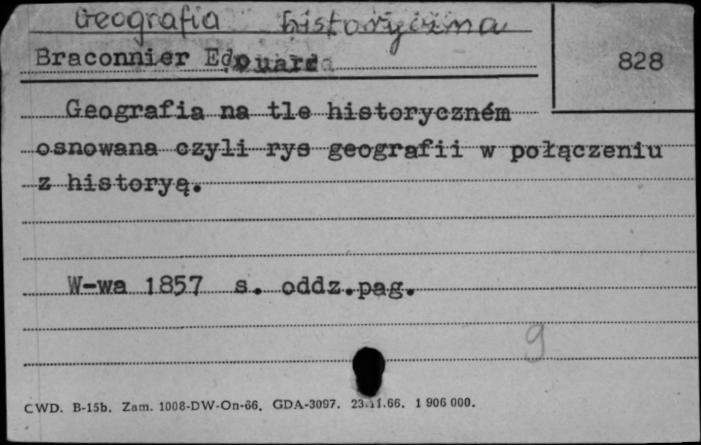 Geografia historyczna
Braconnier Edouard
828
Geografia na tle historyczném
osnowana czyli rys geografii w połączeniu
z historyą.
W-wa 1857 s. oddz.pag.
g
CWD. B-15b. Zam. 1008-DW-On-66. GDA-3097. 23.11.66. 1 906 000.